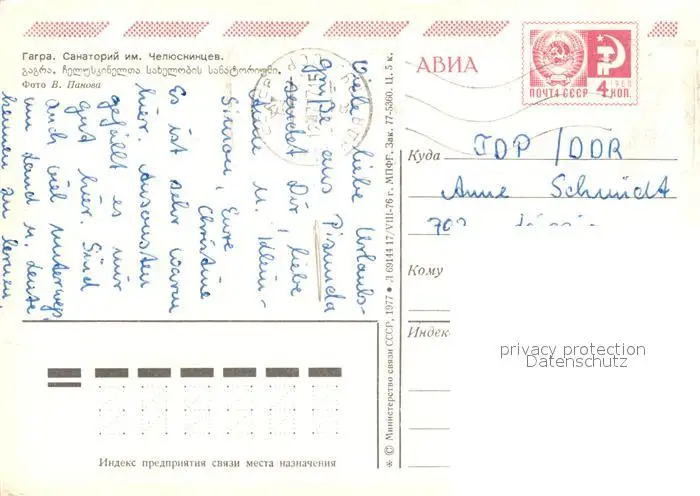 Гагра. Санаторий им. Челюскинцев.
გაგრა. ჩელუსკინელთა სახელობის სანატორიუმი.
Фото В. Панова
Viele liebe Urlaubs-
grüße aus Pizunda
sendet Dir, liebe
Anne u. Klein-
Simon, Eure
Christine
Es ist sehr warm
hier. Ansonsten
gefällt es mir
gut hier. Sind
auch viel unterwegs,
um Land u. Leute
kennen zu lernen.
Индекс предприятия связи места назначения
✻ © Министерство связи СССР, 1977 ● Л 69144 17/VIII-76 г. МПФГ. Зак. 77-5360. Ц. 5 к.
АВИА
ПОЧТА СССР 4 КОП.
Куда ГДР / DDR
Anne Schmidt
Кому
Индекс
privacy protection
Datenschutz